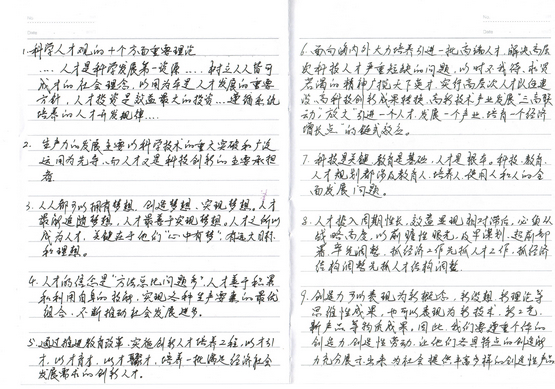 1.科学人才观的十个方面重要理论
....人才是科学发展第一资源....,树立人人皆可
成才的社会理念,以用为本是人才发展的重要
方针,人才投资是效益最大的投资...遵循系统
培养的人才开发规律....
2. 生产力的发展主要以科学技术的重大突破和广泛
运用为先导,而人才又是科技创新的主要承担
者
3. 人人都可以拥有梦想、创造梦想、实现梦想。人才
最能追逐梦想,人才最善于实现梦想。人才之所以
成为人才,关键在于他们"心中有梦",有远大目标
和理想。
4. 人才的信念是"方法总比问题多",人才善于积累
和利用自身的技能,实现各种生产要素的最优
组合,不断推动社会发展进步。
5. 通过推进教育改革,实施创新人才培养工程,以才引
才,以才育才,以才聚才,培养一批满足经济社会
发展需求的创新人才。
6. 面向海内外大力培养引进一批高端人才,解决高层
次科技人才严重短缺的问题,以时不我待,求贤
若渴的精神广揽天下英才,实行高层次人才队伍建
设、高科技创新成果转换、高新技术产业发展"三高联
动",放大"引进一个人才,发展一个产业,培育一个经济
增长点"的链式效应。
7. 科技是关键,教育是基础,人才是根本。科技、教育、
人才规划都涉及教育人、培养人、使用人和人的全
面发展问题。
8. 人才投入周期性长,效益呈现相对滞后,必须从
战略高度,以前瞻性眼光,及早谋划,超前部
署,率先调整,抓经济工作先抓人才工作,抓经济
结构调整先抓人才结构调整
9. 创造力可以表现为新概念、新设想、新理论等
思维性成果,也可以表现为新技术、新工艺、
新产品等物质成果。因此,我们要遵重个体的
创造力创造性劳动,让他们各具特点的创造能
力充分展示出来,为社会提供丰富多样的创造性产品